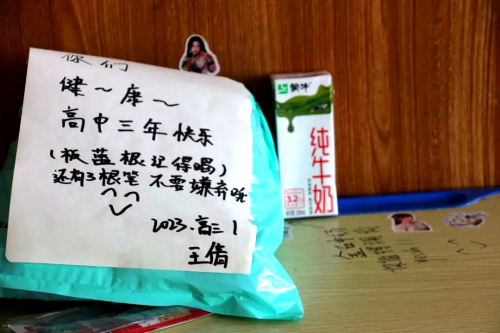 你们
健～康～
高中三年快乐
(板蓝根记得喝)
还有3根笔 不要嫌弃哦
2023.高三1
王倩
蒙牛
纯牛奶
3.2